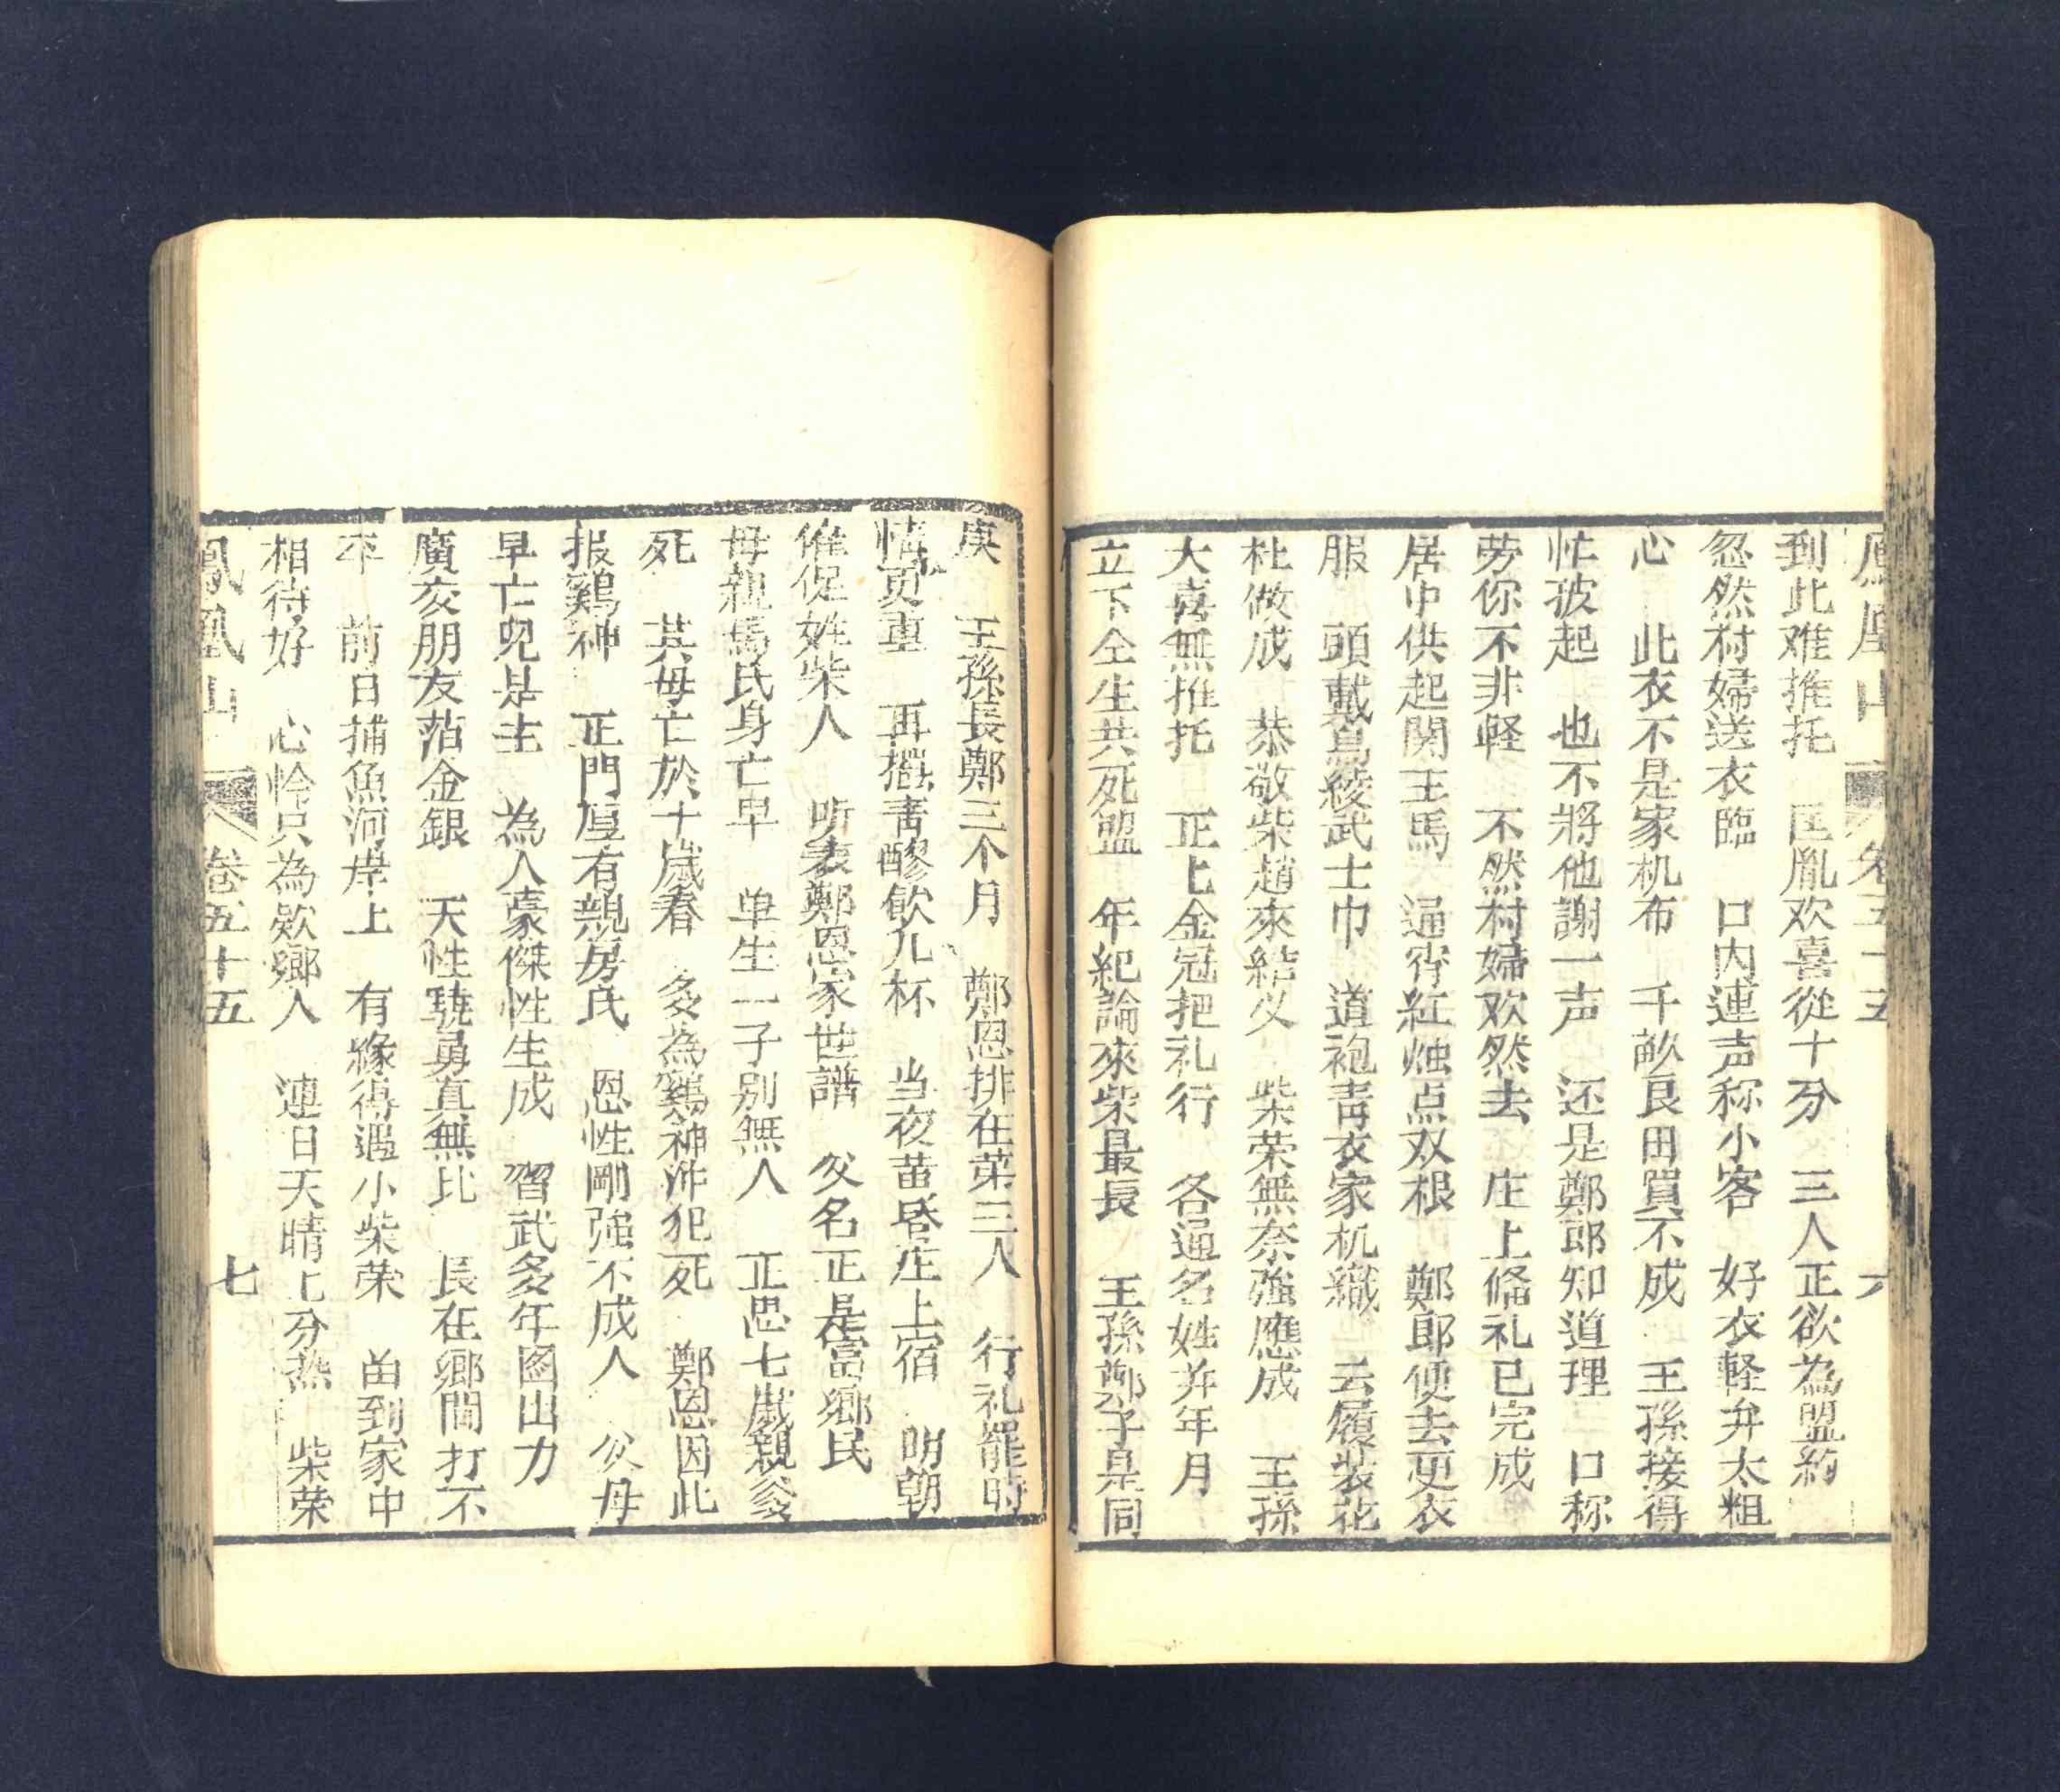 鳳凰山 卷五十五 六
到此难推托 匡胤欢喜從十分 三人正欲為盟約
忽然村婦送衣臨 口内連声称小客 好衣軽弃太粗
心 此衣不是家机布 千畝良田買不成 王孫接得
忙披起 也不將他謝一声 还是鄭郎知道理 口称
劳你不非軽 不然村婦欢然去 庄上俻礼已完成
居中供起関王馬 通宵紅烛点双根 鄭郎便去更衣
服 頭戴烏綾武士巾 道袍青衣家机織 云履装花
杜做成 恭敬柴趙來結义 柴荣無奈強應成 王孫
大喜無推托 正上金冠把礼行 各通名姓并年月
立下仝生共死盟 年紀論來柴最長 王孫鄭子是同
庚 王孫長鄭三个月 鄭恩排在苐三人 行礼罷時
情更重 再擺青醪飲几杯 当夜黄昏庄上宿 明朝
催促姓柴人 听表鄭恩家世譜 父名正是富鄉民
母親馬氏身亡早 单生一子别無人 正思七歲親爹
死 其母亡於十歲春 多為鷄神冲犯死 鄭恩因此
报鷄神 正門厘有親房氏 恩性剛強不成人 父母
早亡兒是主 為人豪傑性生成 習武多年圖出力
廣交朋友落金銀 天性驍勇真無比 長在鄉間打不
平 前日捕魚河岸上 有緣得遇小柴荣 畄到家中
相待好 心怜只為欵鄉人 連日天晴七分热 柴荣
鳳凰山 卷五十五 七